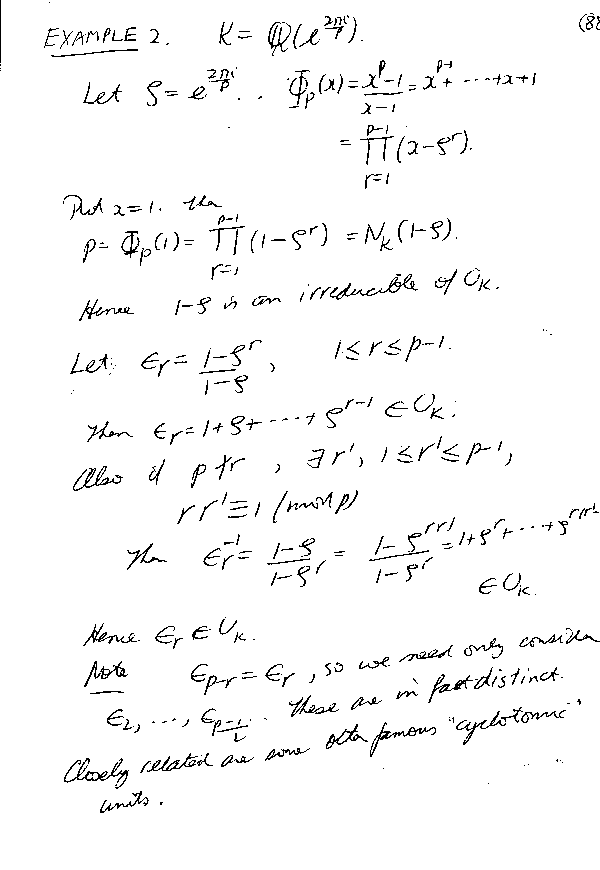 (88
EXAMPLE 2. K = ℚ(e^{2πi/p}).
Let ζ = e^{2πi/p}. . Φ_p(x) = (x^p − 1)/(x − 1) = x^{p-1} + ⋯ + x + 1
= ∏_{r=1}^{p-1} (x − ζ^r).
Put x = 1. Then
p = Φ_p(1) = ∏_{r=1}^{p-1} (1 − ζ^r) = N_K(1 − ζ).
Hence 1 − ζ is an irreducible of O_K.
Let ε_r = (1 − ζ^r)/(1 − ζ), 1 ≤ r ≤ p−1.
Then ε_r = 1 + ζ + ⋯ + ζ^{r-1} ∈ O_K.
Also if p ∤ r, ∃ r', 1 ≤ r' ≤ p−1,
r r' ≡ 1 (mod p)
Then ε_r^{-1} = (1 − ζ)/(1 − ζ^r) = (1 − ζ^{rr'})/(1 − ζ^r) = 1 + ζ^r + ⋯ + ζ^{r(r'-1)}
∈ O_K.
Hence ε_r ∈ U_K.
Note ε_{p-r} = ε_r, so we need only consider
ε_2, ⋯, ε_{(p-1)/2}. These are in fact distinct.
Closely related are some other famous "cyclotomic"
units.